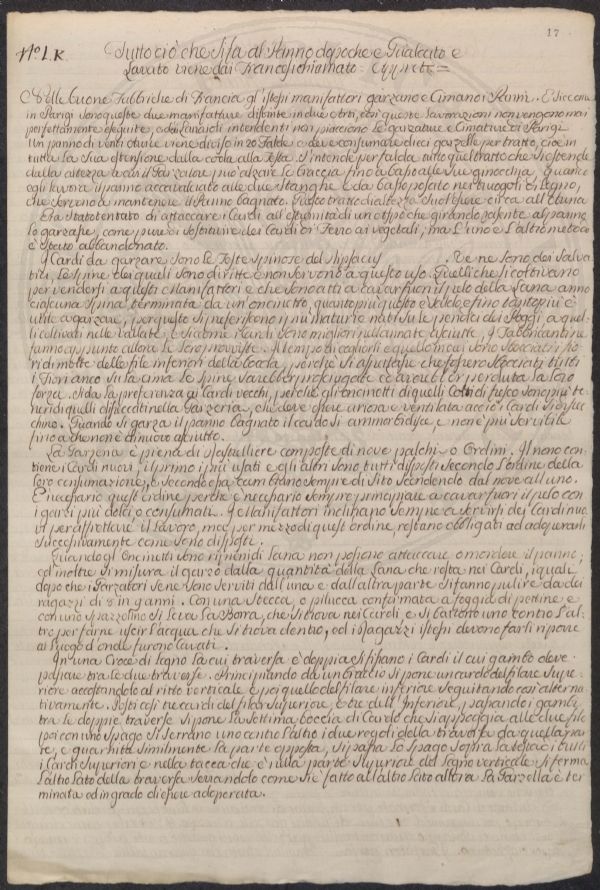 17
N.º I. K.
Tutto ciò che si fa al Panno dopo che e Gualcato e
Lavato viene dai Francesi chiamato
Nelle buone Fabbriche di Francia gl'istessi manifattori garzano e Cimano i Panni. E siccome
in Parigi sono queste due manifatture distinte in due Arti, così queste lavorazioni non vengono mai
perfettamente eseguite, e dei Panaioli intendenti non piacciono le garzature e Cimature di Parigi.
Un panno di venti otture viene diviso in 20 Falde e deve consumare dieci garzelle per tratto, cioe in
tutta la sua estensione dalla coda alla testa. S'intende per falda tutto quel tratto che si estende
dalla altezza a cui il Garzatore può alzare le braccia fino a basso alle sue ginocchia, quando
egli lavora il panno accavalcato alle due Stanghe e da basso posito nei truogoli di legno,
che servono a mantenere il Panno bagnato. Questo tratto di altezza suol essere circa all' otturna
Era stato tentato di attaccare i Cardi all' estremità di un che girando rasente al panno
lo garzasse, come pure di sostituire dei Cardi di Ferro ai vegetali, ma l'uno e l'altro metodo
è stato abbandonato.
I Cardi da garzare sono le Teste spinose del Dipsacus Ve ne sono dei salva
tici, le spine dei quali sono diritte e non servono a questo uso. Quelli che si coltivano
per vendersi a questi Manifattori e che sono atti a cavar fuori il pelo della Lana anno
ciascuna spina terminata da un'oncinetto, quanto più questo è saldo e fino tanto più è
utile a garzare, per questo si preferiscono i più maturi e nati su le pendici dei Poggi a quel
li coltivati nelle vallate, e siccome i Cardi sono migliori nelle annate asciutte, i Fabbricanti ne
fanno appunto allora le loro provviste. Al tempo di coglierli e quello in cui sono sbocciati i fio
ri di molte delle file inferiori della boccia, perche se si aspettasse che fossero sbocciati tutti
i Fiori anco su la cima le spine sarebber prosciugate ed avrebber perduta la loro
forza. Si da la preferenza ai Cardi vecchi, perche gli oncinetti di quelli colti di fresco sono più te
neri di quelli disseccati nella Garzeria, che deve essere ariosa e ventilata acciò i Cardi si disse
chino. Quando si garza il panno bagnato il cardo si ammorbidisce e non è più servibile
fino a che non è di nuovo asciutto.
La Garzeria è piena di Rastrelliere composte di nove palchi o Ordini. Il nono con
tiene i Cardi nuovi, il primo i più usati e gli altri sono tutti disposti secondo l'ordine della
loro consumazione, e secondo essa cambiano sempre di sito scendendo dal nove all' uno.
E necessario quest' ordine perche è necessario sempre principiare a cavar fuori il pelo con
i garzi più dolci o consumati. I Manifattori inclinano sempre a servirsi dei Cardi nuo
vi per affrettare il Lavoro, ma per mezzo di quest' ordine, restano obbligati ad adoperarli
successivamente come sono disposti.
Quando gl' Oncinetti sono ripieni di Lana non possono attaccare o mordere il panno,
ed inoltre si misura il garzo dalla quantità della Lana che resta nei Cardi, i quali
dopo che i Garzatori se ne sono serviti dall' una e dall' altra parte si fanno pulire da dei
ragazzi di 8 in 9 anni. Con una Stecca, o pilucca conformata a foggia di pettine e
con uno spazzolino si leva la Borra, che si trova nei Cardi, e si battono uno contro l'al
tro per farne uscir l'acqua che si trova dentro, ed i Ragazzi istessi devono farli riporre
al luogo d'onde furono Cavati.
In una Croce di legno la cui traversa è doppia si fissano i Cardi il cui gambo deve
passare tra le due traverse. Principiando da un braccio si pone un cardo del filare supe
riore accostandolo al ritto verticale e poi quello del filare inferiore seguitando così alterna
tivamente. Posti così tre cardi del filar superiore, e tre dell' Inferiore, passando i gambi
tra le doppie traverse si pone la settima boccia di Cardo che si appoggia alle due file
poi con uno spago si serrano uno contro l'altro i due regoli della traversa da quella par
te, e guarnita similmente la parte opposta, si passa lo spago sopra la testa di tutti
i Cardi superiori e nella tacca che è nella parte superiore del legno verticale si ferma
l'altro lato della traversa serrandolo come si è fatto all' altro lato allora la Garzella è ter
minata ed in grado di essere adoperata.